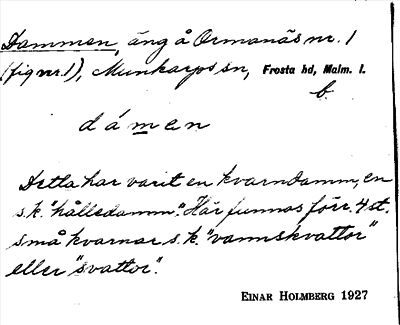 Dammen, äng å Ormanäs nr. 1
(fig nr. 1), Munkarps sn, Frosta hd, Malm. l.
b.
dámen
Detta har varit en kvarndamm, en
s.k. "hålledamm". Här funnos förr 4 st.
små kvarnar s.k. "vannskvattor"
eller "svattor".
EINAR HOLMBERG 1927